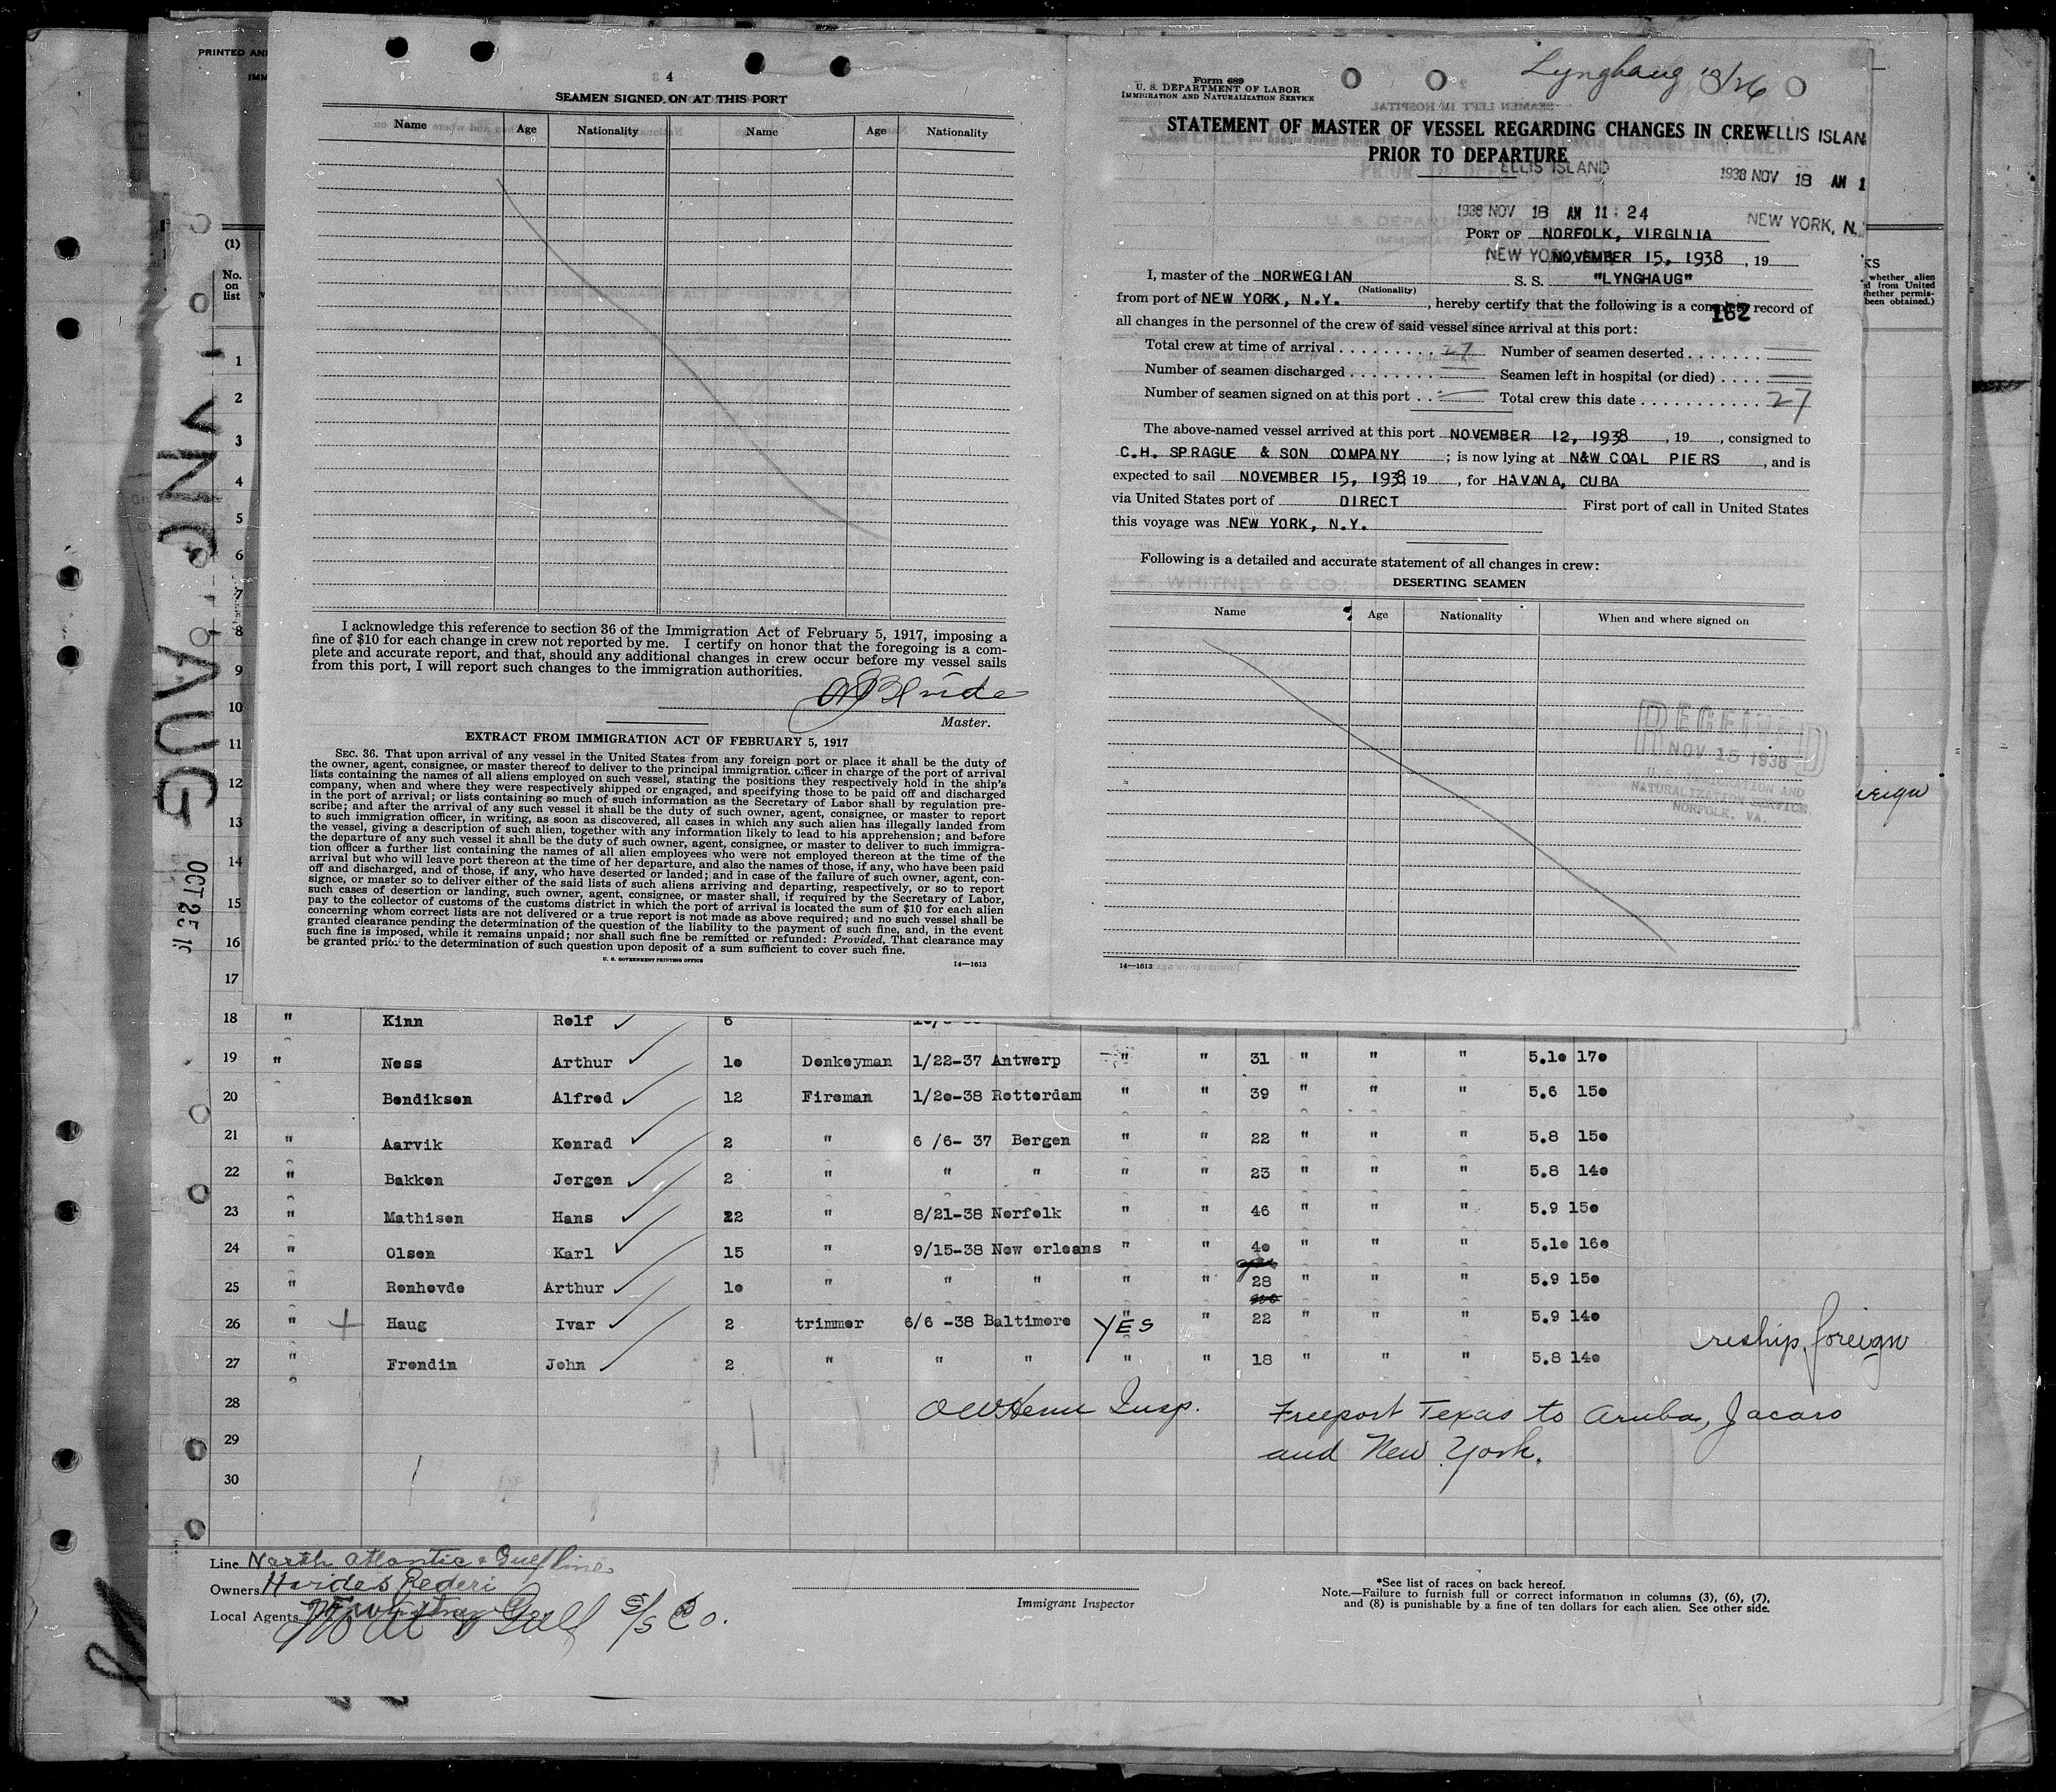 PRINTED AN
IMM
4
SEAMEN SIGNED ON AT THIS PORT
Name Age Nationality Name Age Nationality
I acknowledge this reference to section 36 of the Immigration Act of February 5, 1917, imposing a
fine of $10 for each change in crew not reported by me. I certify on honor that the foregoing is a com-
plete and accurate report, and that, should any additional changes in crew occur before my vessel sails
from this port, I will report such changes to the immigration authorities.
Master.
EXTRACT FROM IMMIGRATION ACT OF FEBRUARY 5, 1917
SEC. 36. That upon arrival of any vessel in the United States from any foreign port or place it shall be the duty of
the owner, agent, consignee, or master thereof to deliver to the principal immigration officer in charge of the port of arrival
lists containing the names of all aliens employed on such vessel, stating the positions they respectively hold in the ship's
company, when and where they were respectively shipped or engaged, and specifying those to be paid off and discharged
in the port of arrival; or lists containing so much of such information as the Secretary of Labor shall by regulation pre-
scribe; and after the arrival of any such vessel it shall be the duty of such owner, agent, consignee, or master to report
to such immigration officer, in writing, as soon as discovered, all cases in which any such alien has illegally landed from
the vessel, giving a description of such alien, together with any information likely to lead to his apprehension; and before
the departure of any such vessel it shall be the duty of such owner, agent, consignee, or master to deliver to such immigra-
tion officer a further list containing the names of all alien employees who were not employed thereon at the time of the
arrival but who will leave port thereon at the time of her departure, and also the names of those, if any, who have been paid
off and discharged, and of those, if any, who have deserted or landed; and in case of the failure of such owner, agent, con-
signee, or master so to deliver either of the said lists of such aliens arriving and departing, respectively, or so to report
such cases of desertion or landing, such owner, agent, consignee, or master shall, if required by the Secretary of Labor,
pay to the collector of customs of the customs district in which the port of arrival is located the sum of $10 for each alien
concerning whom correct lists are not delivered or a true report is not made as above required; and no such vessel shall be
granted clearance pending the determination of the question of the liability to the payment of such fine, and, in the event
such fine is imposed, while it remains unpaid; nor shall such fine be remitted or refunded: Provided, That clearance may
be granted prior to the determination of such question upon deposit of a sum sufficient to cover such fine.
U. S. GOVERNMENT PRINTING OFFICE 14—1613
Lynghaug
Form 689
U. S. DEPARTMENT OF LABOR
IMMIGRATION AND NATURALIZATION SERVICE
STATEMENT OF MASTER OF VESSEL REGARDING CHANGES IN CREW
PRIOR TO DEPARTURE
ELLIS ISLAN
1938 NOV 18 AM 1
NEW YORK, N.
ELLIS ISLAND
1938 NOV 18 AM 11:24
NEW YO
PORT OF NORFOLK, VIRGINIA
NOVEMBER 15, 1938, 19
I, master of the NORWEGIAN S. S. "LYNGHAUG"
(Nationality)
from port of NEW YORK, N.Y., hereby certify that the following is a complete record of
162
all changes in the personnel of the crew of said vessel since arrival at this port:
Total crew at time of arrival 27 Number of seamen deserted
Number of seamen discharged Seamen left in hospital (or died)
Number of seamen signed on at this port Total crew this date 27
The above-named vessel arrived at this port NOVEMBER 12, 1938, 19, consigned to
C.H. SPRAGUE & SON COMPANY; is now lying at N&W COAL PIERS, and is
expected to sail NOVEMBER 15, 1938 19, for HAVANA, CUBA
via United States port of DIRECT First port of call in United States
this voyage was NEW YORK, N.Y.
Following is a detailed and accurate statement of all changes in crew:
DESERTING SEAMEN
Name Age Nationality When and where signed on
RECEIVED
NOV 15 1938
U. S. IMMIGRATION AND
NATURALIZATION SERVICE,
NORFOLK, VA.
14—1613
(1)
No.
on
list
KS
whether alien
from United
whether permis-
been obtained.)
1
2
3
4
5
6
7
8
9
10
11
12
13
14
15
16
17
18 " Kinn Rolf 6
19 " Ness Arthur 10 Donkeyman 1/22-37 Antwerp " " 31 " " " 5.10 170
20 Bendiksen Alfred 12 Fireman 1/20-38 Rotterdam " " 39 " " " 5.6 150
21 " Aarvik Konrad 2 " 6 /6- 37 Bergen " " 22 " " " 5.8 150
22 " Bakken Jorgen 2 " " " " " 23 " " " 5.8 140
23 " Mathisen Hans 22 " 8/21-38 Norfolk " " 46 " " " 5.9 150
24 " Olsen Karl 15 " 9/15-38 New orleans " " 40 " " " 5.10 160
25 " Ronhovde Arthur 10 " " " " " 28 " " " 5.9 150
26 " Haug Ivar 2 trimmer 6/6 -38 Baltimore YES " 22 " " " 5.9 140
27 " Frondin John 2 " " " " " 18 " " " 5.8 140
reship foreign
28 Insp. Freeport Texas to Aruba, Jacaro
29 and New York.
30
Line North Atlantic & Gulf line
Owners Harides Rederi
Local Agents
No Atl & Gulf S/S Co.
Immigrant Inspector
*See list of races on back hereof.
Note.—Failure to furnish full or correct information in columns (3), (6), (7),
and (8) is punishable by a fine of ten dollars for each alien. See other side.